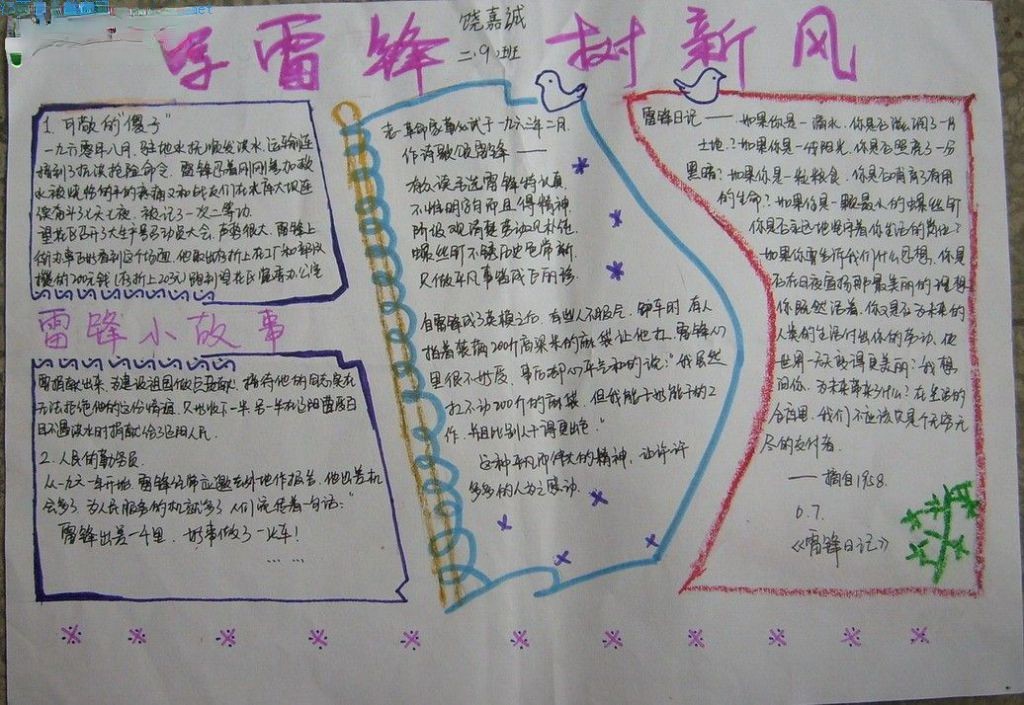 学雷锋 树新风
饶嘉诚
二.9.班
1. 可敬的"傻子"
一九六零年八月，驻地水抚顺发洪水，运输连
接到了抗洪抢险命令。雷锋忍着刚刚参加救
火被烧伤的手的疼痛又和战友们在水库大坝连
续奋斗了七天七夜，被记了一次二等功.
望花区召开了大生产号召动员大会，声势很大，雷锋上
街办事正好看到这个场面，他取出存折上在工厂和部队
攒的200元钱(存折上203元)跑到望花区党委办公室
雷锋小故事
要捐献出来，为建设祖国做点贡献，接待他的同志实在
无法拒绝他的这份情谊，只好收下一半.另一半在辽阳遭受百
年不遇洪水时捐献给了辽阳人民.
2. 人民的勤务员.
从一九六一年开始，雷锋经常应邀去外地作报告，他出差机
会多了，为人民服务的机就多了，人们流传着一句话:"
雷锋出差一千里，好事做了一火车!
… …
老一革命家董必武于一九六三年二月.
作诗歌颂雷锋——
有众读毛选雷锋特认真
不惟明字句而且得精神
阶级观清楚劳动见朴纯
螺丝钉不锈历史色常新
只做平凡事皆成巨丽珍
自雷锋成了英模之后，有些人不服气，卸车时 有人
指着装满200斤高粱米的麻袋让他扛，雷锋心
里很不好受，事后却心平气和的说:"我虽然
扛不动200斤的麻袋，但我能干好能干的工
作，并且比别人干得更出色."
这种平凡而伟大的精神，让许许
多多的人为之感动.
雷锋日记——如果你是一滴水，你是否滋润了一寸
土地?如果你是一线阳光，你是否照亮了一分
黑暗?如果你是一粒粮食，你是否哺育了有用
的生命?如果你是一颗最小的螺丝钉
你是否永远地坚守着你生活的岗位?
如果你要告诉我们什么思想，你是
否在日夜宣扬那最美丽的理想
你既然活着，你又是否为未来的
人类的生活付出你的劳动，使
世界一天天变得更美丽?我想
问你，为未来带来了什么?在生活的
仓库里，我们不应该只是个无穷无
尽的支付者.
——摘自1958.
6.7.
《雷锋日记》